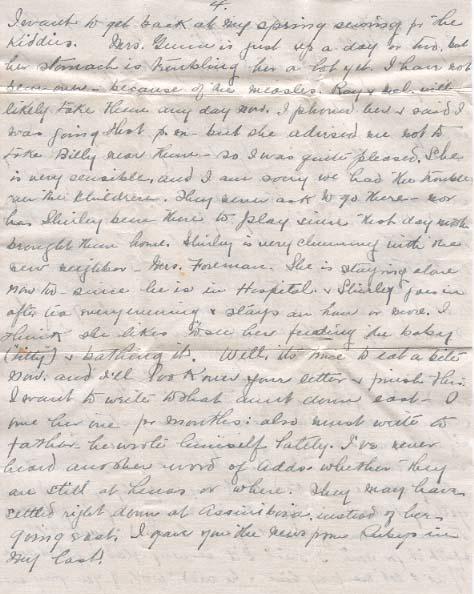 4.
I want to get back at my spring sewing for the
Kiddies. Mrs. Gunn is just up a day or two, but
her stomach is troubling her a lot yet. I have not
been over - because of the measles. Ray & Mel. will
likely take them any day now. I phoned her & said I
was going that p.m - but she advised me not to
take Billy near them - so I was quite pleased. She
is very sensible, and I am sorry we had the trouble
over the children. They never ask to go there - nor
has Shirley been there to play since that day mother
brought them home. Shirley is very chummy with the
new neighbor - Mrs. Foreman. She is staying alone
now too - since he is in Hospital. & Shirley goes in
after tea every evening & stays an hour or more. I
think she likes to see her feeding the baby
(titty) & bathing it. Well, its time to eat a bite
now. and I'll look over your letter & finish this.
I want to write to that aunt down east - I
owe her one for months: also must write to
father he wrote himself lately. I've never
heard another word of Addo. whether they
are still at or where. They may have
settled right down at Assiniboia. instead of her
going east. I gave you the news from Rubys in
my last!